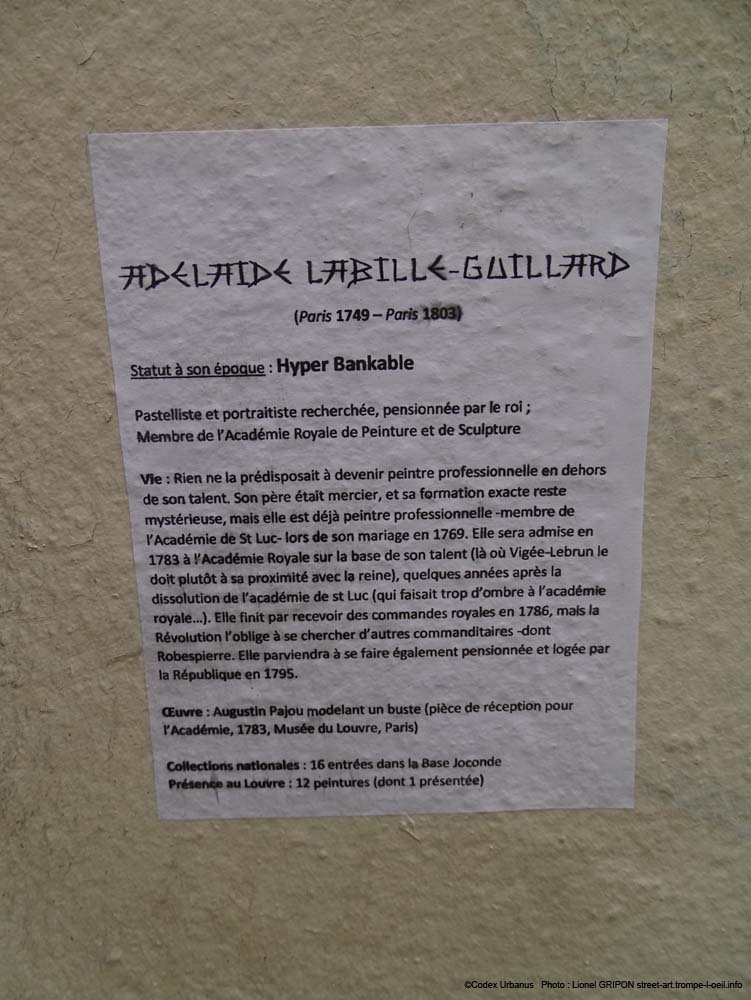 ADELAIDE LABILLE-GUILLARD
(Paris 1749 – Paris 1803)
Statut à son époque : Hyper Bankable
Pastelliste et portraitiste recherchée, pensionnée par le roi ;
Membre de l'Académie Royale de Peinture et de Sculpture
Vie : Rien ne la prédisposait à devenir peintre professionnelle en dehors
de son talent. Son père était mercier, et sa formation exacte reste
mystérieuse, mais elle est déjà peintre professionnelle -membre de
l'Académie de St Luc- lors de son mariage en 1769. Elle sera admise en
1783 à l'Académie Royale sur la base de son talent (là où Vigée-Lebrun le
doit plutôt à sa proximité avec la reine), quelques années après la
dissolution de l'académie de st Luc (qui faisait trop d'ombre à l'académie
royale...). Elle finit par recevoir des commandes royales en 1786, mais la
Révolution l'oblige à se chercher d'autres commanditaires -dont
Robespierre. Elle parviendra à se faire également pensionnée et logée par
la République en 1795.
Œuvre : Augustin Pajou modelant un buste (pièce de réception pour
l'Académie, 1783, Musée du Louvre, Paris)
Collections nationales : 16 entrées dans la Base Joconde
Présence au Louvre : 12 peintures (dont 1 présentée)
©Codex Urbanus Photo : Lionel GRIPON street-art.trompe-l-oeil.info